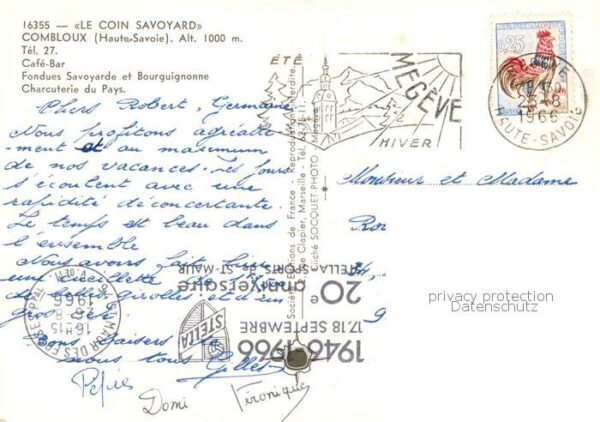 16355 — «LE COIN SAVOYARD»
COMBLOUX (Haute-Savoie). Alt. 1000 m.
Tél. 27.
Café-Bar
Fondues Savoyarde et Bourguignonne
Charcuterie du Pays.
Chers Robert, Germaine
Nous profitons agréable-
ment et au maximum
de nos vacances. Les jours
s'écoulent avec une
rapidité déconcertante.
Le temps est beau dans
l'ensemble
Nous avons fait hier
une cueillette
de girolles et a
Bons baisers
nous tous Gilles
Pépées
Domi
Véronique
ÉTÉ
MEGÈVE
HIVER
0,25
MEGÈVE
1966
HAUTE-SAVOIE
Monsieur et Madame
Ror
Société Éditions de France - Reproduction interdite
rue Clapier, Marseille - Tél. 62-76-11
Cliché SOCQUET-PHOTO Megève
1946-1966
17.18 SEPTEMBRE
STELLA
20e anniversaire
STELLA-SPORTS de ST-MAUR
ST-MAUR DES FOSSES PPAL
16H15
1966
privacy protection
Datenschutz